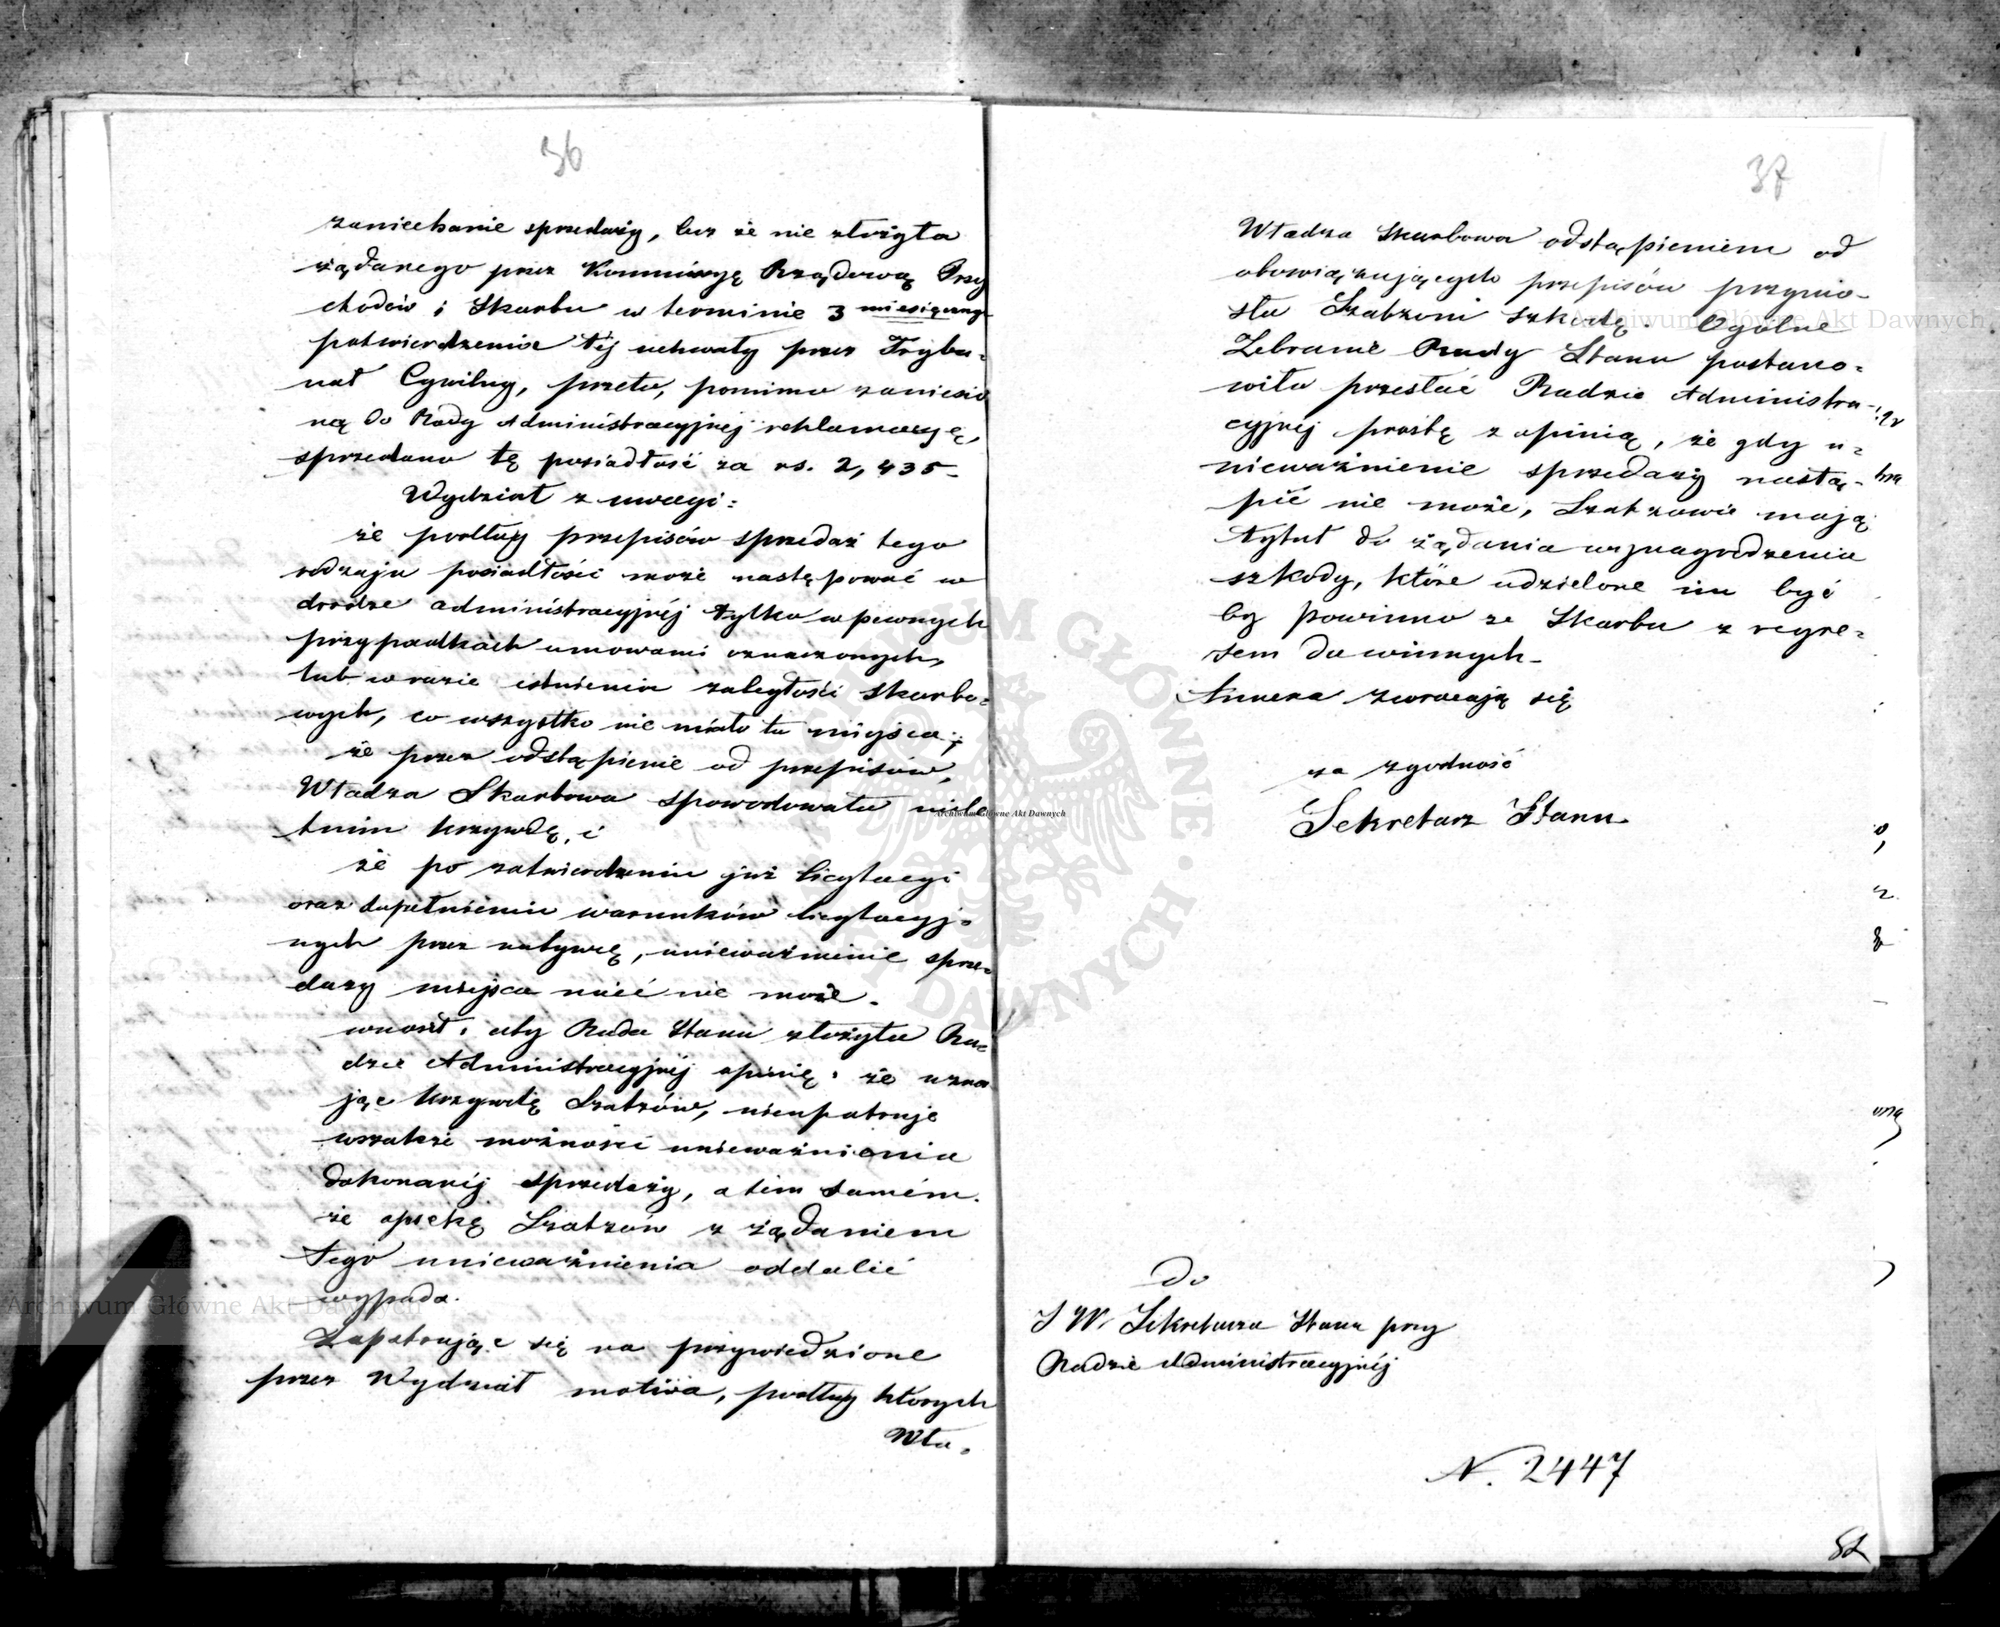 36
zaniechanie sprzedaży, lecz że nie złożyła
żądanego przez Kommissyę Rządową Przy
chodów i Skarbu w terminie 3 miesięcznym
potwierdzenia téj uchwały przez Trybu-
nał Cywilny, przeto, pomimo zaniesio
ną do Rady Administracyjnéj reklamacyę,
sprzedano tę posiadłość za rs. 2,435-
Wydział z uwagi:
że podług przepisów sprzedaż tego
rodzaju posiadłości może następować w
drodze administracyjnéj tylko w pewnych
przypadkach umowami oznaczonych,
lub w razie istnienia zaległości skarbo-
wych, co wszystko nie miało tu miejsca;
że przez odstąpienie od przepisów,
Władza Skarbowa spowodowała niele
tnim krzywdę, i
że po zatwierdzeniu już licytacyi
oraz dopełnieniu warunków licytacyj-
nych przez nabywcę, unieważnienie sprze-
daży miejsca mieć nie może.
wnosi: aby Rada Stanu złożyła Ra-
dzie Administracyjnéj opinię: że uzna
jąc krzywdę Szatzów, nieupatruje
wszakże możności unieważnienia
dokonanéj sprzedaży, a tém samém.
że opiekę Szatzów z żądaniem
tego unieważnienia oddalić
wypada.
Zapatrując się na przywiedzione
przez Wydział motiva, podług których
Wła-
37
Władza Skarbowa odstąpieniem od
obowiązujących przepisów przynio-
sła Szatzom szkodę. Ogólne
Zebranie Rady Stanu postano-
wiło przesłać Radzie Administra-
cyjnéj prośbę z opinią, że gdy u-
nieważnienie sprzedaży nastą-
pić nie może, Szatzowie mają
tytuł do żądania wynagrodzenia
szkody, które udzielone im być
by powinno ze Skarbu z regre-
sem do winnych-
Annexa zwracają się
za zgodność
Sekretarz Stanu
Do
J W. Sekretarza Stanu przy
Radzie Administracyjnéj
N. 2447
82
Archiwum Główne Akt Dawnych
Archiwum Główne Akt Dawnych
Archiwum Główne Akt Dawnych